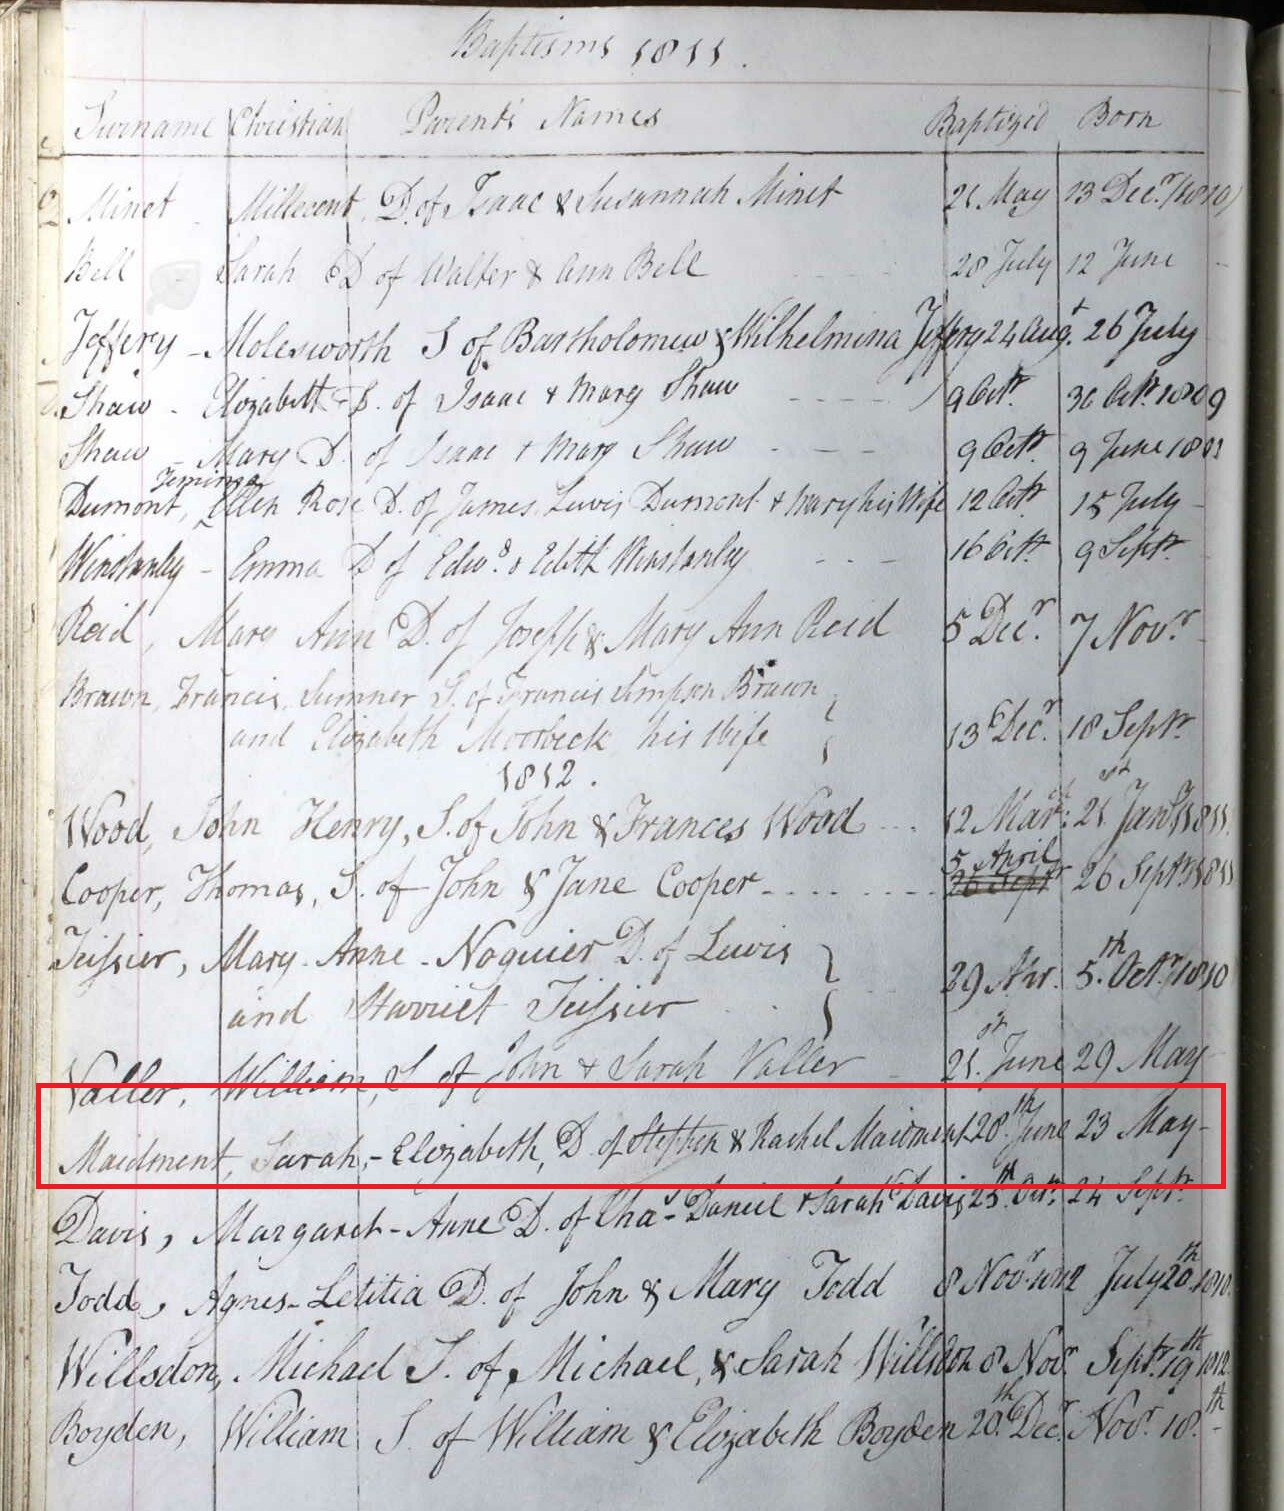 Baptisms 1811.
Surname Christian Parents Names Baptized Born
Minet Millecent D. of Isaac & Susannah Minet 21 May 13 Decr. (1810)
Bell Sarah D of Walter & Ann Bell 28 July 12 June
Jeffery - Molesworth S of Bartholomew & Wilhelmina Jeffery 24 Augt. 26 July
Shaw - Elizabeth - D. of Isaac & Mary Shaw 9 Octr. 30 Octr. 1809
Shaw - Mary D. of Isaac & Mary Shaw 9 Octr. 9 June
Jemima
Dumont, Ellen Rose D. of James Lewis Dumont & Mary his Wife 12 Octr 15 July
Winstanley - Emma D of Edwd. & Edith Winstanley 16 Octr. 9 Septr.
Reid, Mary Ann D. of Joseph & Mary Ann Reid 5 Decr. 7 Novr.
Brawn, Francis, Sumner S. of Francis Simpson Brawn
and Elizabeth Moorbeck his Wife 13 Decr. 18 Septr.
1812.
Wood, John Henry, S. of John & Frances Wood 12 Mar. 21st Jany. 1811.
5 April
Cooper, Thomas, S. of John & Jane Cooper 26 Septr 26 Septr. 1811
Teissier, Mary-Anne-Noquier D. of Lewis
and Harriet Teissier 29 Apr. 5th. Octr. 1810
Valler, William, S of John & Sarah Valler 21st. June 29 May
Maidment, Sarah,-Elizabeth, D. of Stephen & Rachel Maidment 28th June 23 May
Davis, Margaret-Anne D. of Chas- Daniel & Sarah Davis 25th Octr. 24 Septr.
Todd, Agnes-Letitia D. of John & Mary Todd 8 Novr. 1812 July 20th. 1810.
Willsdon, Michael S. of, Michael, & Sarah Willsdon 8 Novr. Septr. 19th 1812
Boyden, William S. of William & Elizabeth Boyden 20th. Decr. Novr. 18th.